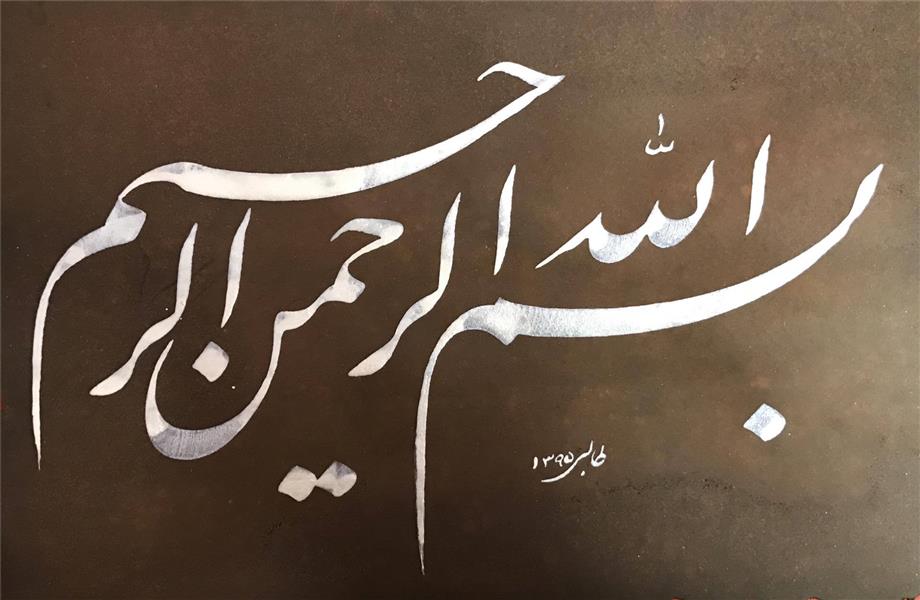 بسم الله الرحمن الرحیم
طالبی ۱۳۹۵